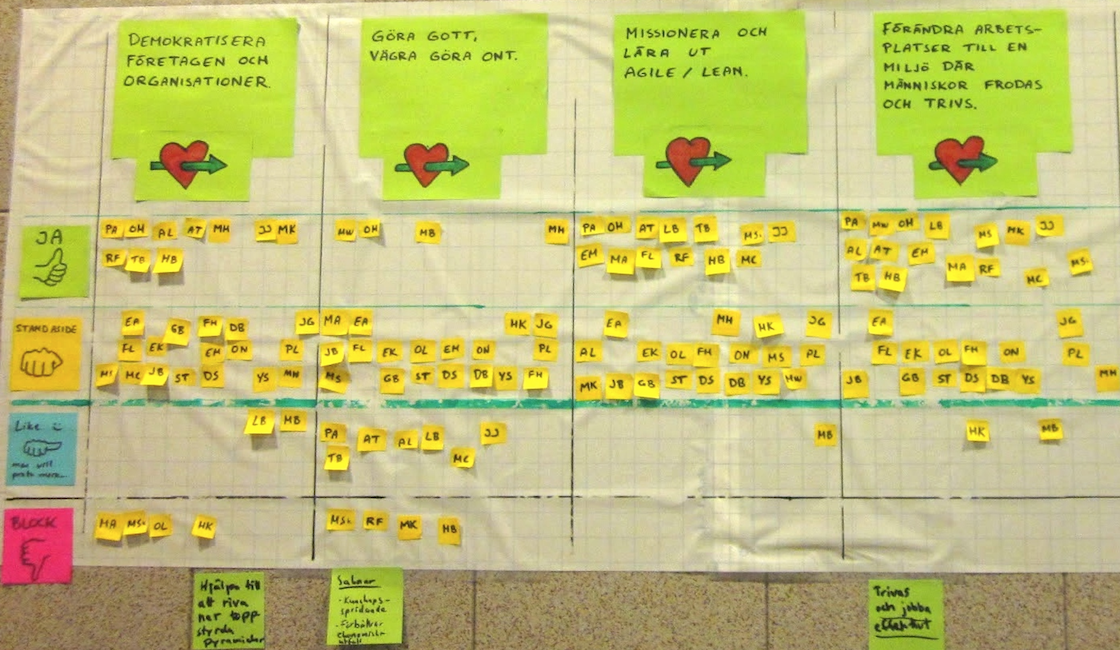 DEMOKRATISERA
FÖRETAGEN OCH
ORGANISATIONER.
GÖRA GOTT,
VÄGRA GÖRA ONT.
MISSIONERA OCH
LÄRA UT
AGILE / LEAN.
FÖRÄNDRA ARBETS-
PLATSER TILL EN
MILJÖ DÄR
MÄNNISKOR FRODAS
OCH TRIVS.
JA
PA OH AL AT MH JJ MK
RF TB HB
MW OH MB MH
PA OH AT LB TB MS. JJ
EM MA FL RF HB MC
PA MW OH LB MS MK JJ
AL AT EM MA RF MC MS.
TB HB
STANDASIDE
EA GB FH DB JG
FL EK EM ON PL
MC JB ST DS YS MW
MA EA HK JG
JB FL EK OL EM ON PL
MS GB ST DS DB YS FH
EA MH HK JG
AL EK OL FH ON MS PL
MK JB GB ST DS DB YS MW
EA JG
FL EK OL FH ON PL
JB GB ST DS DB YS MH
Like
men vill
prata mera...
LB MB
PA AT AL LB JJ
TB MC
MB
HK MB
BLOCK
MA MS. OL HK
MS. RF MK HB
Hjälpa till
att riva
ner topp
styrda
pyramider
Saknar
- Kunskaps-
spridande
- Förbättrar
ekonomiskt
utfall
Trivas
och jobba
effektivt